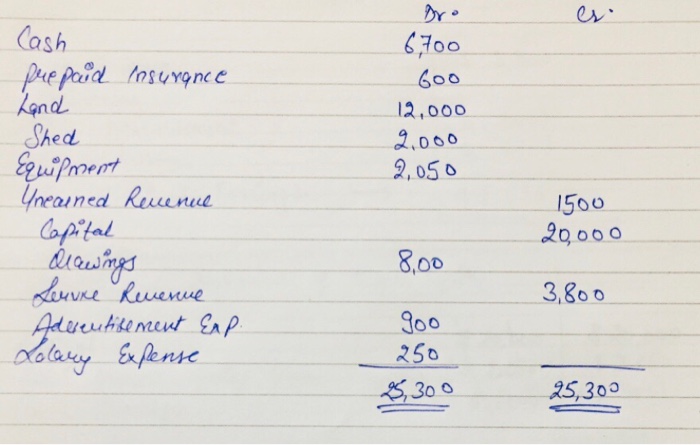 Dr. Cr.
Cash 6,700
Prepaid Insurance 600
Land 12,000
Shed 2,000
Equipment 2,050
Unearned Revenue 1500
Capital 20,000
Drawings 8,00
Servre Revenue 3,800
Advertisement Exp. 900
Salary Expense 250
25,300 25,300